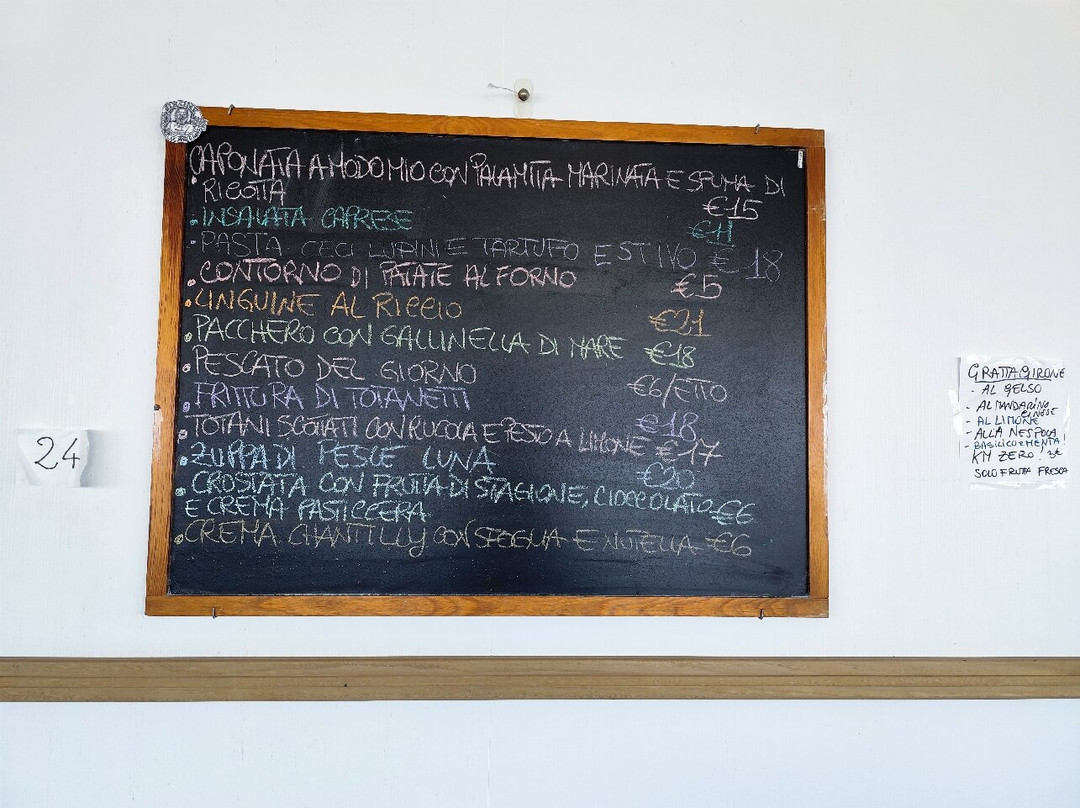 CAPONATA A MODO MIO CON PALAMITA MARINATA E SPUMA DI
RICOTTA €15
INSALATA CAPRESE €11
PASTA CECI LUPINI E TARTUFO ESTIVO € 18
CONTORNO DI PATATE AL FORNO €5
LINGUINE AL RICCIO €21
PACCHERO CON GALLINELLA DI MARE €18
PESCATO DEL GIORNO €6/ETTO
FRITTURA DI TOTANETTI €18
TOTANI SCOTTATI CON RUCOLA E PESTO A LIMONE €17
ZUPPA DI PESCE LUNA €20
CROSTATA CON FRUTTA DI STAGIONE, CIOCCOLATO €6
E CREMA PASTICCERA
CREMA CHANTILLY CON SFOGLIA E NUTELLA €6
24
GRATTAGIRONE
- AL GELSO
- AL MANDARINO
CINESE
- AL LIMONE
- ALLA NESPOLA
- BASILICO E MENTA!
KM ZERO! 3€
SOLO FRUTTA FRESCA